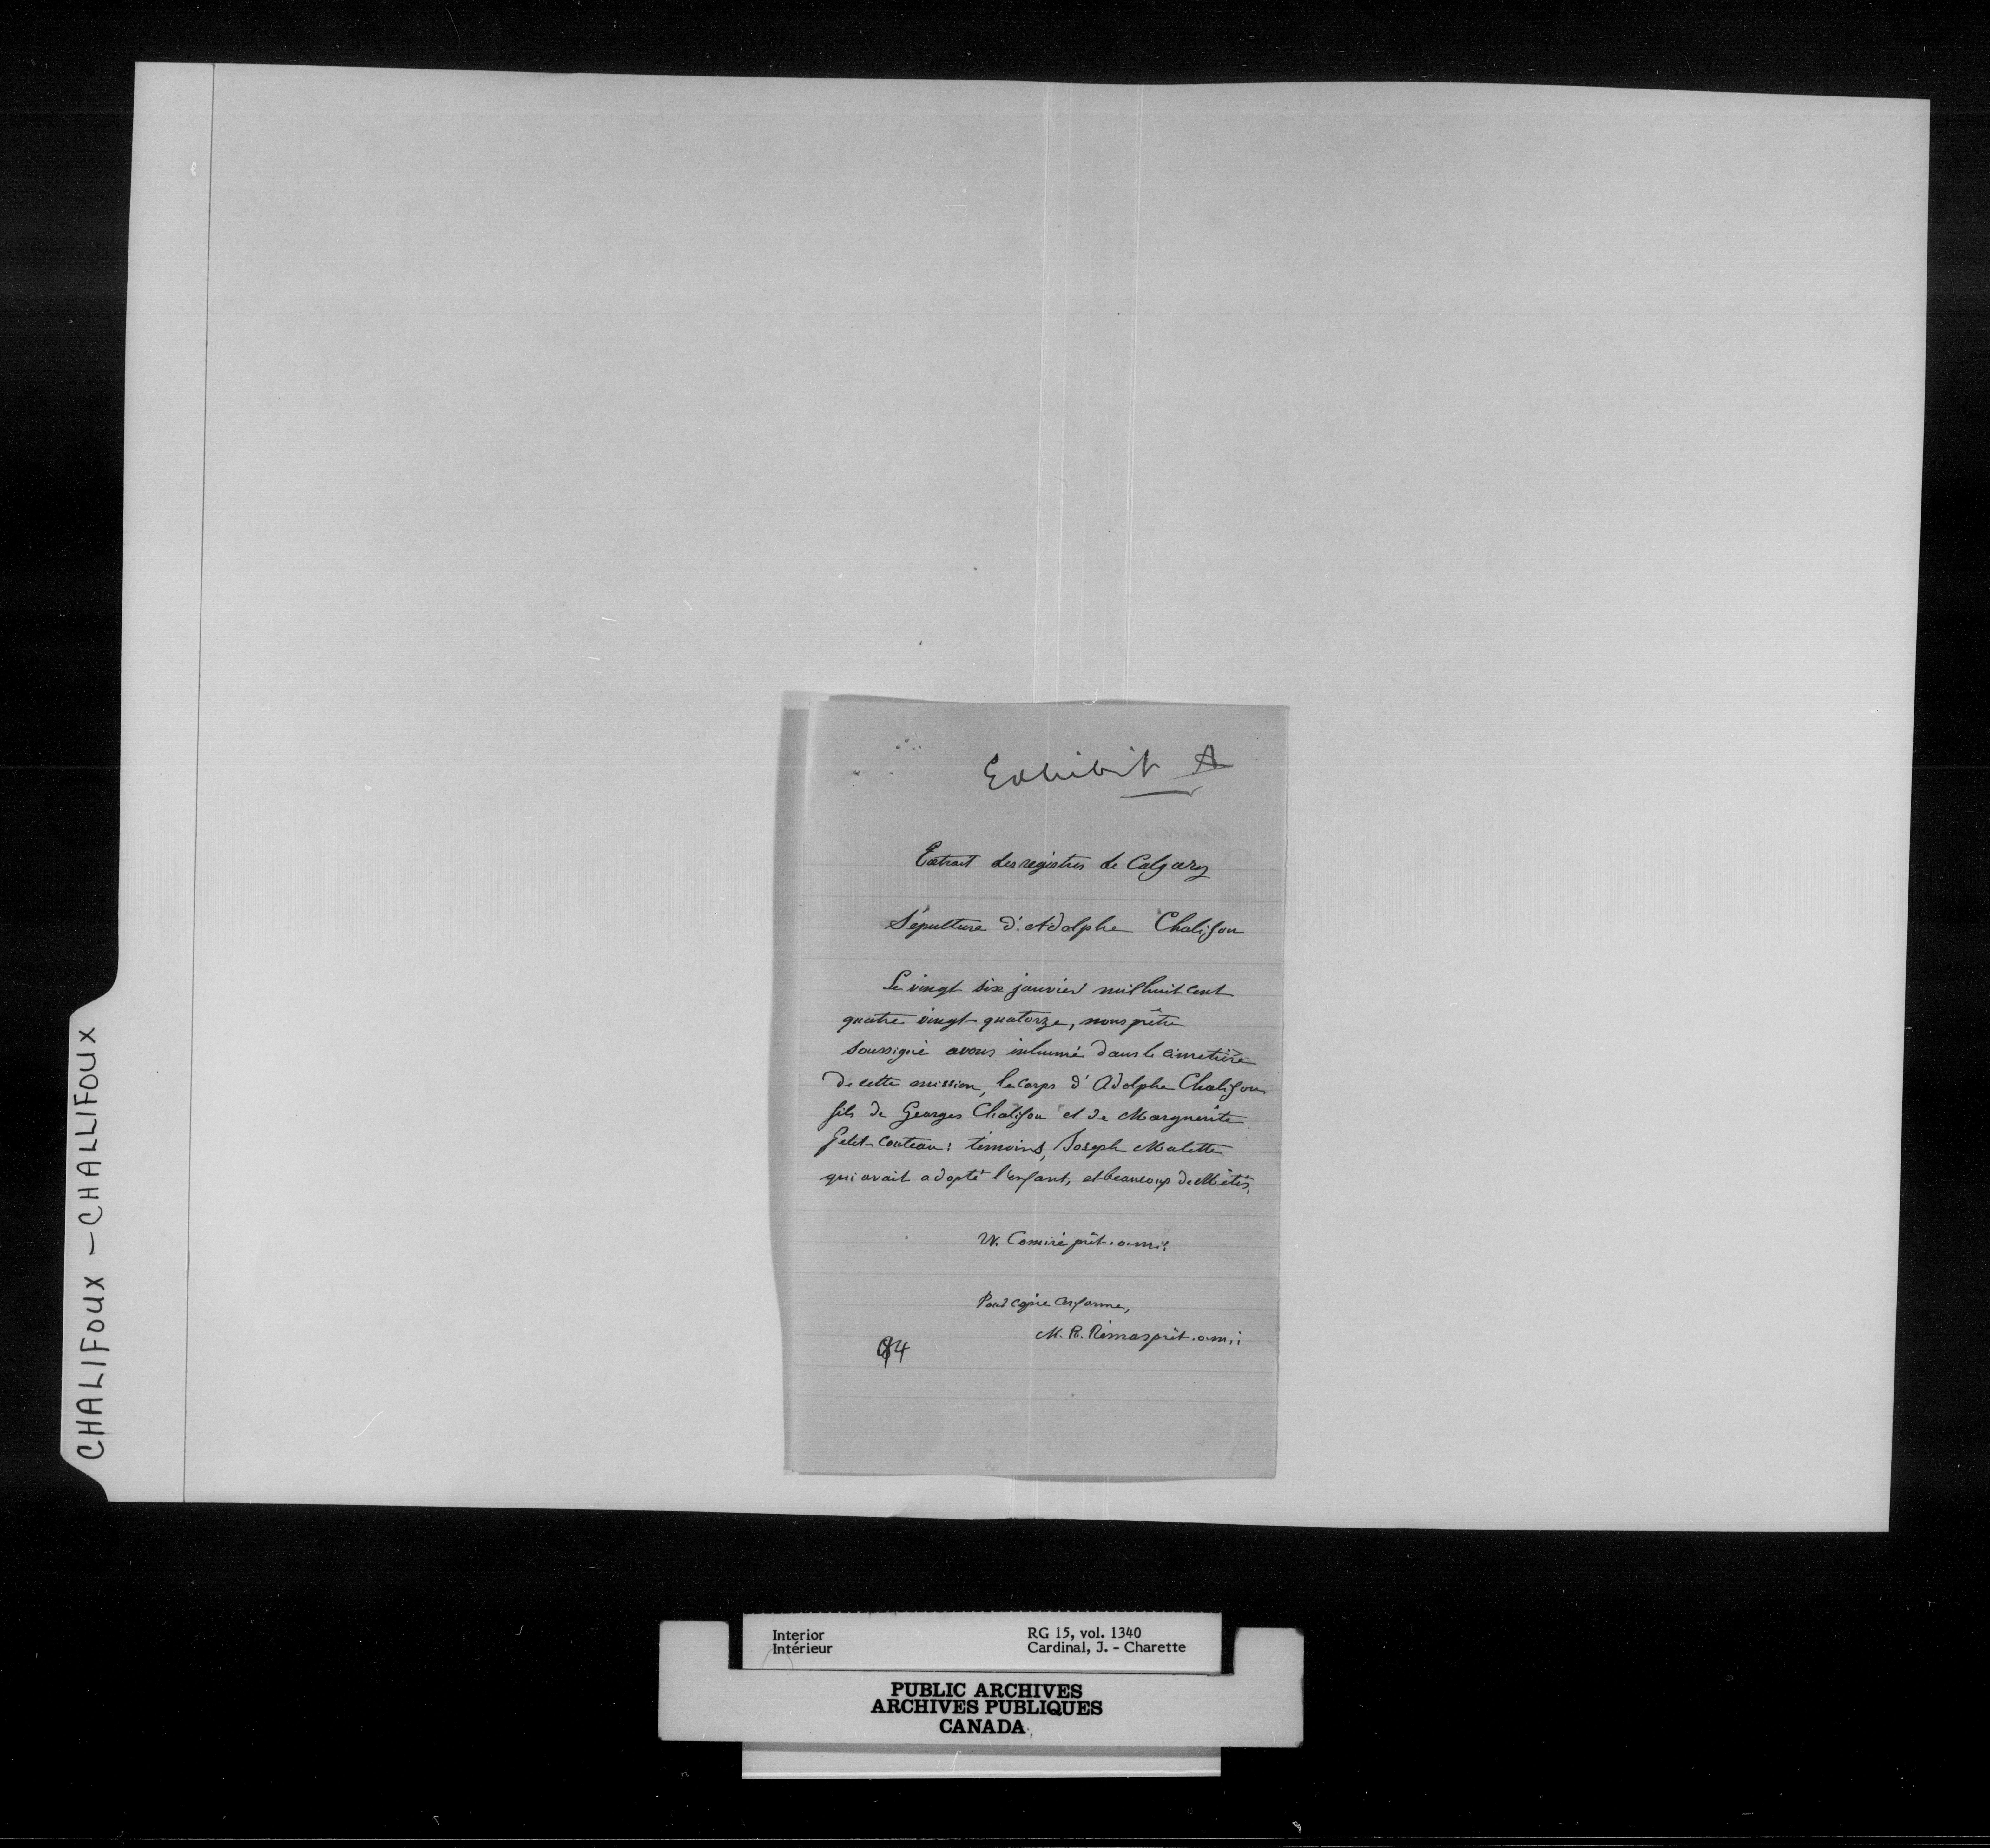 Exhibit A
Extrait des registres de Calgary
Sépulture d'Adolphe Chalifou
Le vingt six janvier mil huit cent
quatre vingt quatorze, nous prêtre
soussigné avons inhumé dans le cimetière
de cette mission, le corps d'Adolphe Chalifou
fils de Georges Chalifou et de Marguerite
Petit-Couteau: témoins, Joseph Malette
qui avait adopté l'enfant, et beaucoup de Métis.
W. Comiré prêt. o.m.i.
Pour copie conforme,
M. R. prêt. o.m.i
84
CHALIFOUX - CHALLIFOUX
Interior
Intérieur
RG 15, vol. 1340
Cardinal, J. - Charette
PUBLIC ARCHIVES
ARCHIVES PUBLIQUES
CANADA